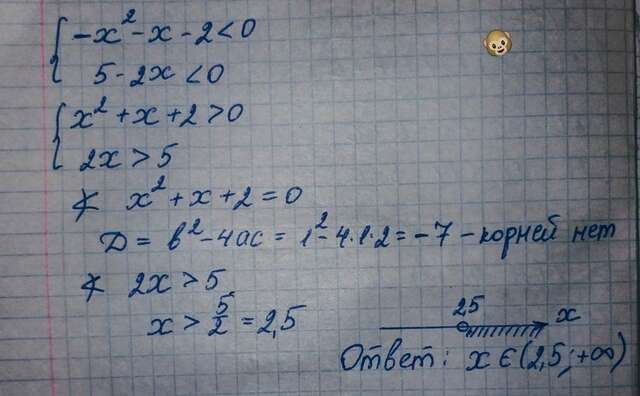 { -x² - x - 2 < 0
{ 5 - 2x < 0
{ x² + x + 2 > 0
{ 2x > 5
* x² + x + 2 = 0
Д = b² - 4ac = 1² - 4·1·2 = -7 - корней нет
* 2x > 5
x > 5/2 = 2,5
2,5 x
Ответ: x ∈ (2,5; +∞)